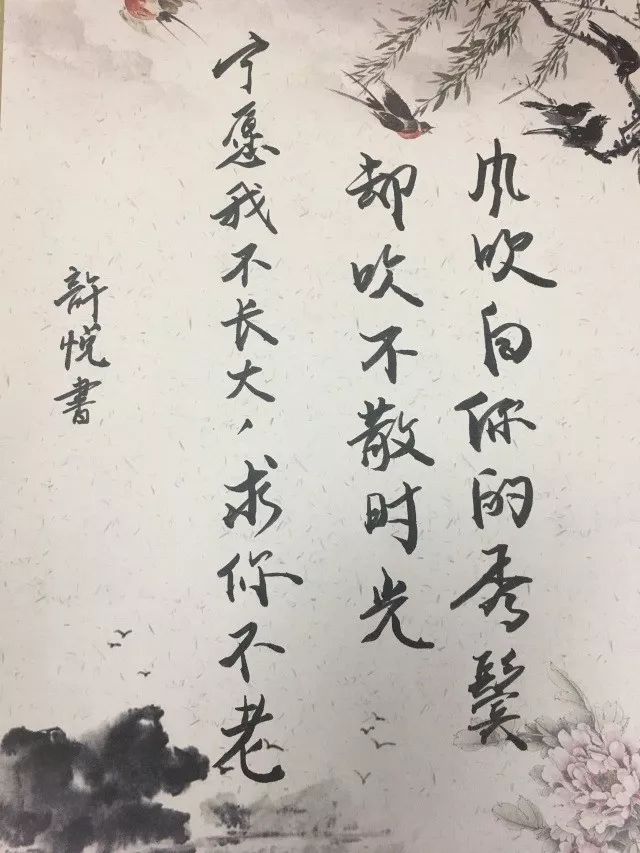 风吹白你的秀鬓
却吹不散时光
宁愿我不长大，求你不老
許悦書